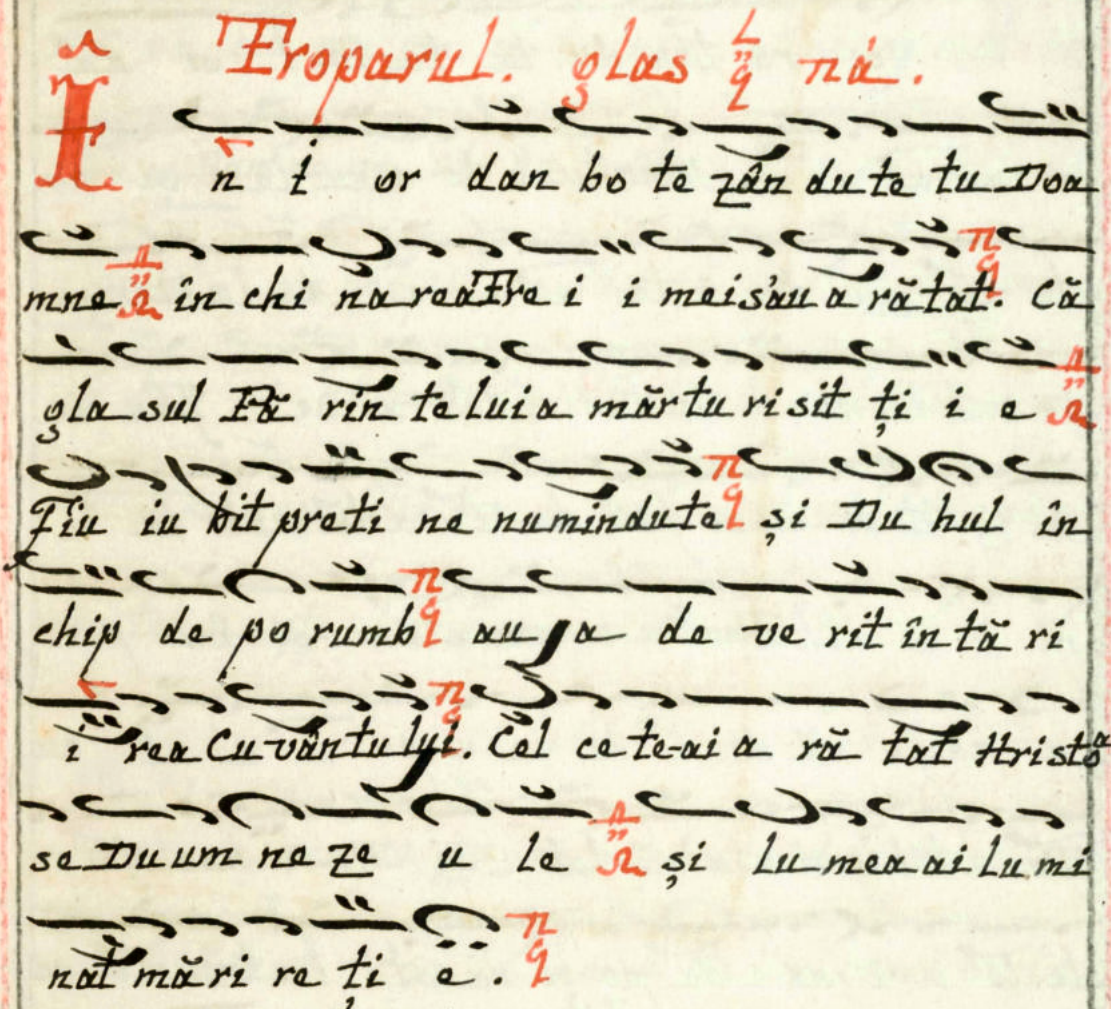 Troparul. glas ná.
În I or dan bo te zân du te tu Doa
mne în chi na rea Tre i i mei s'au a ră tat. Că
gla sul Pă rin te lui a măr tu ri sit ți i e
Fiu iu bit pre ti ne numindute și Du hul în
chip de po rumb au a de ve rit în tă ri
i rea Cu vân tu lui. Cel ce te-ai a ră tat Hristoa
se Du um ne ze u le și lu mea ai lu mi
nat mă ri re ți e.